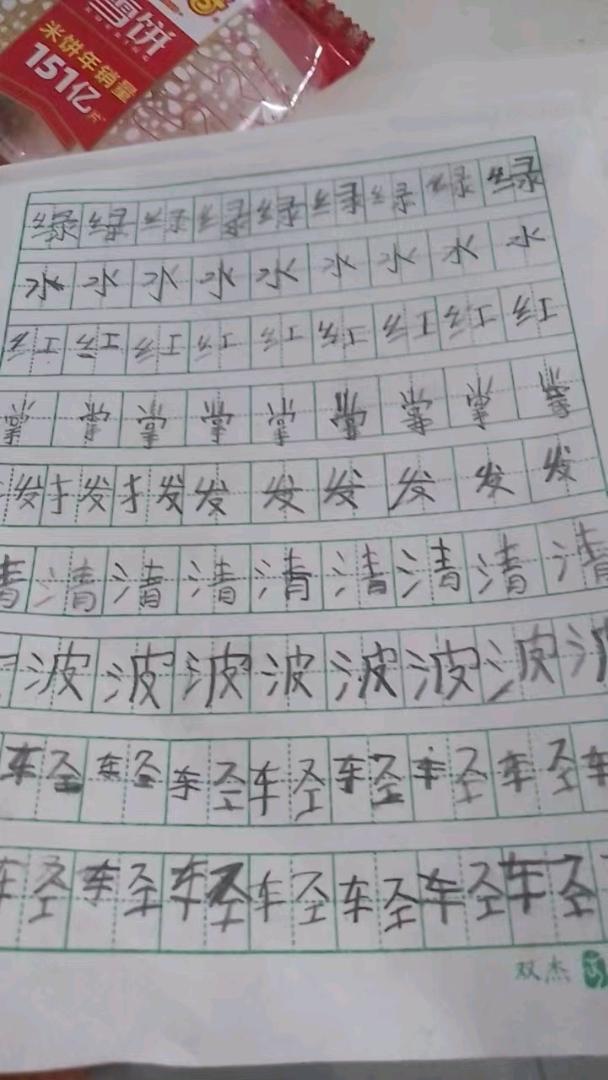 雪饼
米饼年销量
151亿片
绿绿绿绿绿绿绿绿绿
水水水水水水水水水
红红红红红红红红红
掌掌掌掌掌掌掌掌掌
发扌发扌发发发发发发发
清清清清清清清清清
波波波波波波波波
轻轻轻轻轻轻轻车
轻轻轻轻轻轻轻
双杰